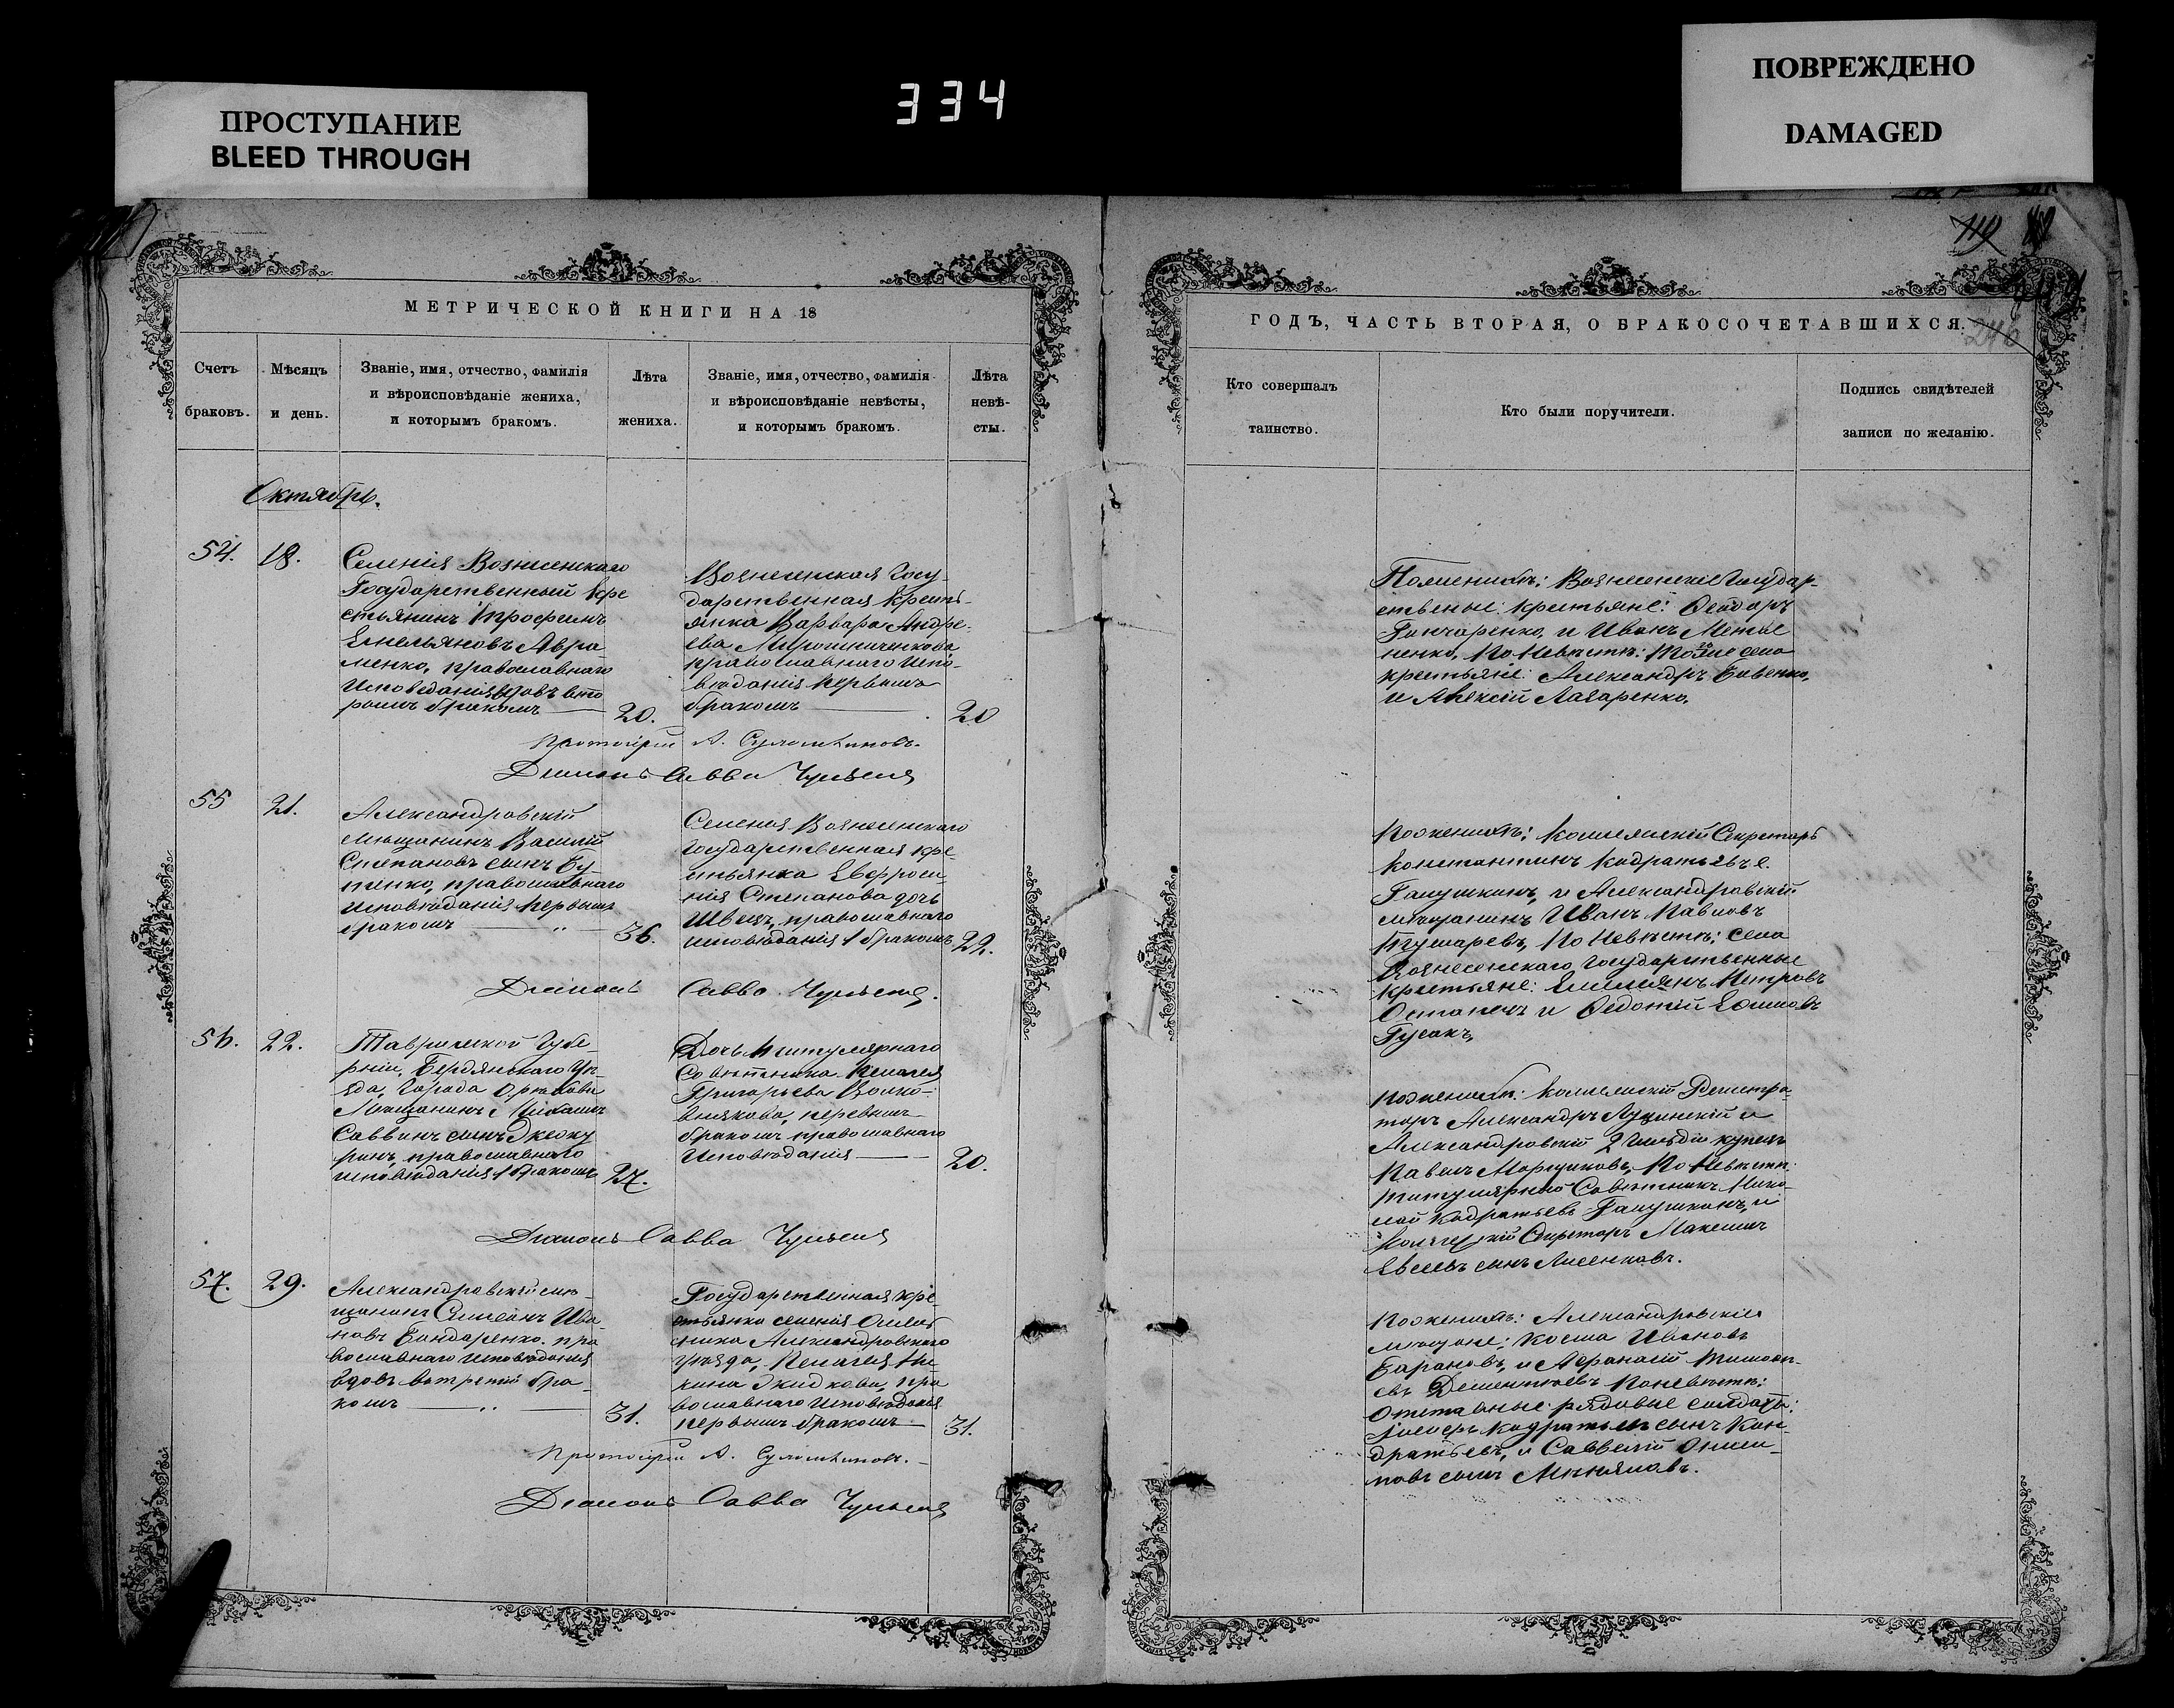 ПРОСТУПАНИЕ
BLEED THROUGH
334
ПОВРЕЖДЕНО
DAMAGED
119
246
МЕТРИЧЕСКОЙ КНИГИ НА 18
Счетъ браковъ.
Мѣсяцъ и день.
Званіе, имя, отчество, фамилія
и вѣроисповѣданіе жениха,
и которымъ бракомъ.
Лѣта жениха.
Званіе, имя, отчество, фамилія
и вѣроисповѣданіе невѣсты,
и которымъ бракомъ.
Лѣта
невѣ-
сты.
Октябрь.
54.
18.
Селенія Вознесенскаго
Государственный кре
стьянинъ Трофимъ
Емельяновъ Авра-
менко, православнаго
Исповеданія вдовъ вто
рымъ бракомъ
20.
Вознесенская Госу-
дарственная кресть-
янка Варвара Андре-
ева Мирошниченкова
православнаго испо-
вѣданія первымъ
бракомъ
20
Протоіерей А.
Діаконъ Савва
55
21.
Александровскій
мѣщанинъ Василій
Степановъ сынъ Бу-
тенко, православнаго
исповѣданія первымъ
бракомъ
36.
Селенія Вознесенскаго
государственная кре-
стьянка Евфроси-
нія Степанова дочь
Швецъ, православнаго
исповѣданія 1 бракомъ
22.
Діаконъ Савва
56.
22.
Таврической Губе-
рніи, Бердянскаго Уѣ-
зда, Города Орѣхова
Мѣщанинъ Михаилъ
Саввинъ сынъ Джеку
ринъ, православнаго
исповѣданія 1 бракомъ
27.
Дочь титулярнаго
Совѣтника Пелагея
Григорьева
первымъ
бракомъ православнаго
Исповѣданія
20.
Діаконъ Савва
57.
29.
Александровскій мѣ-
щанинъ Симеонъ Ива-
новъ Бондаренко. пра
вославнаго исповѣданія
вдовъ вотретій бра-
комъ
31.
Государственная кре-
стьянка селенія
Александровскаго
уѣзда, Пелагея Ни-
кина пра
вославнаго исповѣданія
первымъ бракомъ
31.
Протоіерей А.
Діаконъ Савва
ГОДЪ, ЧАСТЬ ВТОРАЯ, О БРАКОСОЧЕТАВШИХСЯ.
Кто совершалъ
таинство.
Кто были поручители.
Подпись свидѣтелей
записи по желанію.
По женихѣ: Вознесенскіе Государ-
ственые крестьяне: Ѳеодоръ
Гончаренко, и Иванъ
По Невѣстѣ: села
крестьяне: Александръ Бабенко,
и Алексій Лазаренко.
По женихѣ: Коллежскій Секретарь
Константинъ Кодратьевъ
Галушкинъ, и Александровскій
мѣщанинъ Иванъ Павловъ
По Невѣстѣ: села
Вознесенскаго Государственные
крестьяне: Петровъ
Остапецъ и Ѳедотій Ефимовъ
Гусакъ,
По женихѣ: Коллежскій Регистра-
торъ Александръ Лузинскій и
Александровскій 2 гильдіи купецъ
Павелъ По Невѣстѣ:
титулярный Совѣтникъ Нико-
лай Кодратьевъ Галушкинъ, и
Коллежскій Секретарь Максимъ
Евсеевъ сынъ Лисенковъ.
По женихѣ: Александровскіе
мѣщане: Косма Ивановъ
Барановъ, и Афанасій Тимофе-
евъ Дементьевъ По невѣстѣ:
Отставные рядовые солдаты:
Кодратьевъ сынъ Кон-
дратьевъ, и Савелій
новъ сынъ